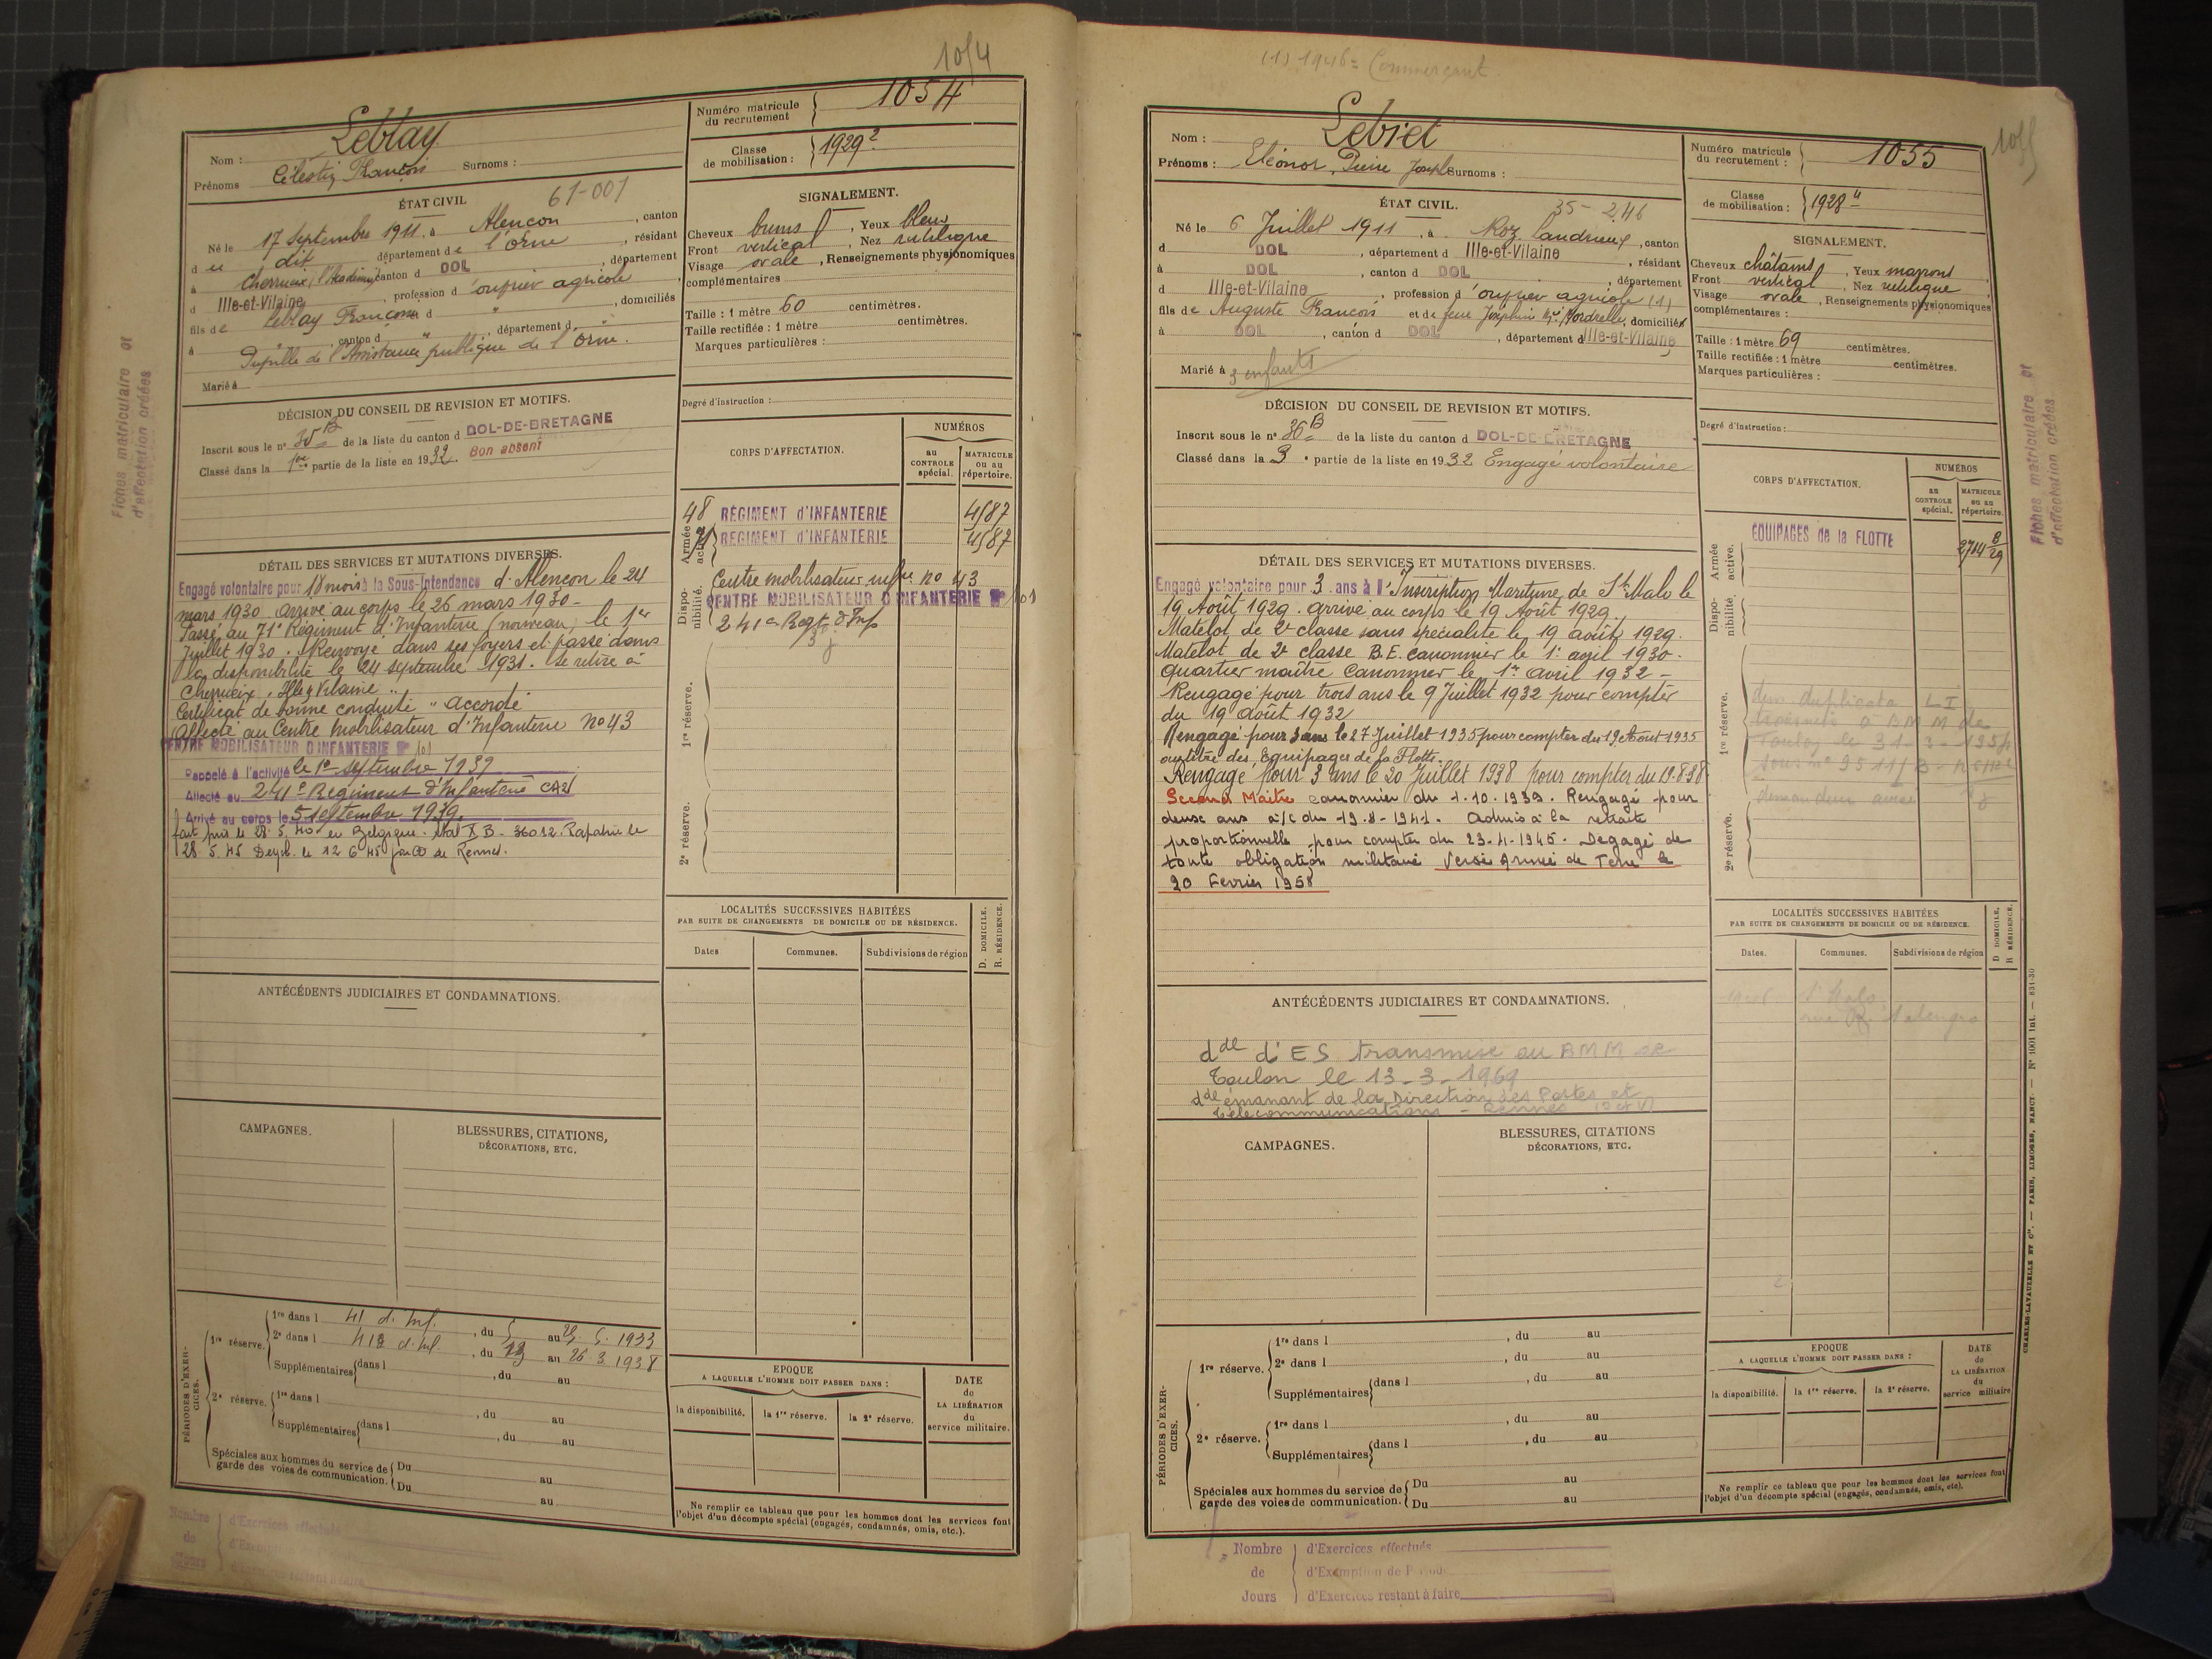 1054
Leblay
Nom :
Célestin François
Prénoms
Surnoms :
Numéro matricule
du recrutement
1054
Classe
de mobilisation :
1929 2
ÉTAT CIVIL
61-001
Né le 17 Septembre 1911, à Alençon, canton
du dit département de l'Orne, résidant
à Cherrueix, canton d DOL, département
d Ille-et-Vilaine, profession d'ouvrier agricole
fils de Leblay François et d " , domiciliés
à " , canton d " , département d "
Pupille de l'Assistance publique de l'Orne.
Marié à
SIGNALEMENT.
Cheveux bruns, Yeux bleus
Front vertical, Nez rectiligne
Visage ovale, Renseignements physionomiques
complémentaires
Taille : 1 mètre 60 centimètres.
Taille rectifiée : 1 mètre centimètres.
Marques particulières :
Degré d'instruction :
DÉCISION DU CONSEIL DE REVISION ET MOTIFS.
Inscrit sous le n° 35 B de la liste du canton d DOL-DE-BRETAGNE
Classé dans la 1re partie de la liste en 1932. Bon absent
CORPS D'AFFECTATION.
NUMÉROS
au CONTROLE spécial.
MATRICULE ou au répertoire.
Armée active.
48 RÉGIMENT d'INFANTERIE 4587
71 REGIMENT d'INFANTERIE 4587
Disponibilité.
Centre mobilisateur infie no 43
CENTRE MOBILISATEUR D'INFANTERIE N° 101
241e Regt d'Inf
1re réserve.
2e réserve.
DÉTAIL DES SERVICES ET MUTATIONS DIVERSES.
Engagé volontaire pour 18 mois à la Sous-Intendance d'Alençon le 24
mars 1930. Arrivé au corps le 26 mars 1930 -
Passé au 71e Régiment d'Infanterie (nouveau) le 1er
Juillet 1930. Renvoyé dans ses foyers et passé dans
la disponibilité le 24 septembre 1931. Se retire à
Cherrueix, Ille & Vilaine "
Certificat de bonne conduite " Accordé
Affecté au Centre Mobilisateur d'Infanterie no 43
CENTRE MOBILISATEUR D'INFANTERIE N° 101
Rappelé à l'activité le 1er septembre 1939
Affecté au 241e Régiment d'Infanterie CA2
Arrivé au corps le 5 septembre 1939.
fait pris le 28.5.40 en Belgique. Stal X B - 36012. Rapatrié le
28.5.45 Demob. le 12 6 45 par CD de Rennes.
LOCALITÉS SUCCESSIVES HABITÉES
PAR SUITE DE CHANGEMENTS DE DOMICILE OU DE RÉSIDENCE.
Dates
Communes.
Subdivisions de région
D. DOMICILE.
R. RÉSIDENCE.
ANTÉCÉDENTS JUDICIAIRES ET CONDAMNATIONS.
CAMPAGNES.
BLESSURES, CITATIONS,
DÉCORATIONS, ETC.
PÉRIODES D'EXERCICES.
1re réserve.
1re dans l 41 d'Inf. , du 5 au 25. 5. 1933
2e dans l 41e d'Inf , du 13 au 26.3.1938
Supplémentaires dans l , du au
2e réserve.
1re dans l , du au
Supplémentaires dans l , du au
Spéciales aux hommes du service de
garde des voies de communication.
Du au
Du au
EPOQUE
A LAQUELLE L'HOMME DOIT PASSER DANS :
la disponibilité.
la 1re réserve.
la 2e réserve.
DATE
de
LA LIBÉRATION
du
service militaire.
Ne remplir ce tableau que pour les hommes dont les services font
l'objet d'un décompte spécial (engagés, condamnés, omis, etc.).
Nombre de Jours
d'Exercices effectués
Fiches matriculaire et
d'affectation créées
(1) 1946 = Commerçant
1055
Lebret
Nom :
Prénoms : Eléonor, Pierre Joseph Surnoms :
Numéro matricule
du recrutement :
1055
Classe
de mobilisation :
1928 4
ÉTAT CIVIL.
35-246
Né le 6 Juillet 1911, à Roz Landrieux, canton
d DOL, département d Ille-et-Vilaine, résidant
à DOL, canton d DOL, département
d Ille-et-Vilaine, profession d'ouvrier agricole (1)
fils de Auguste François et de feue Joséphine Mie Hordrelle, domiciliés
à DOL, canton d DOL, département d Ille-et-Vilaine
Marié à 3 enfants
SIGNALEMENT.
Cheveux châtains, Yeux marrons
Front vertical, Nez rectiligne
Visage ovale, Renseignements physionomiques
complémentaires :
Taille : 1 mètre 69 centimètres.
Taille rectifiée : 1 mètre centimètres.
Marques particulières :
Degré d'instruction :
DÉCISION DU CONSEIL DE REVISION ET MOTIFS.
Inscrit sous le n° 36 B de la liste du canton d DOL-DE-BRETAGNE
Classé dans la 3e partie de la liste en 1932 Engagé volontaire
CORPS D'AFFECTATION.
NUMÉROS
au CONTROLE spécial.
MATRICULE ou au répertoire.
Armée active.
EQUIPAGES de la FLOTTE 2714 B/29
Disponibilité.
1re réserve.
dem duplicata LI
transmis à BMM de
Toulon le 31-3-1954
2e réserve.
DÉTAIL DES SERVICES ET MUTATIONS DIVERSES.
Engagé volontaire pour 3 ans à l'Inscription Maritime de St Malo le
19 Août 1929. arrivé au corps le 19 Août 1929.
Matelot de 2e classe sans spécialité le 19 août 1929.
Matelot de 2e classe B.E. canonnier le 1er avril 1930.
Quartier maître Canonnier le 1er avril 1932 -
Rengagé pour trois ans le 9 Juillet 1932 pour compter
du 19 août 1932
Rengagé pour 3 ans le 27 Juillet 1935 pour compter du 19 Aout 1935
au titre des Equipages de la Flotte.
Rengagé pour 3 ans le 20 Juillet 1938 pour compter du 19.8.38
Second Maître canonnier du 1.10.1939. Rengagé pour
deux ans à/c du 19-8-1941. Admis à la retraite
proportionnelle pour compter du 23-4-1945. Dégagé de
toute obligation militaire Versé Armée de Terre le
20 Février 1958
LOCALITÉS SUCCESSIVES HABITÉES
PAR SUITE DE CHANGEMENTS DE DOMICILE OU DE RÉSIDENCE.
Dates.
Communes.
Subdivisions de région
D DOMICILE.
R RÉSIDENCE.
1946 St Malo
ANTÉCÉDENTS JUDICIAIRES ET CONDAMNATIONS.
dde d'ES transmise au BMM de
Toulon le 13-3-1969
dde émanant de la Direction des Postes et
télécommunications - Rennes
CAMPAGNES.
BLESSURES, CITATIONS
DÉCORATIONS, ETC.
PÉRIODES D'EXERCICES.
1re réserve.
1re dans l , du au
2e dans l , du au
Supplémentaires dans l , du au
2e réserve.
1re dans l , du au
Supplémentaires dans l , du au
Spéciales aux hommes du service de
garde des voies de communication.
Du au
Du au
EPOQUE
A LAQUELLE L'HOMME DOIT PASSER DANS :
la disponibilité.
la 1re réserve.
la 2e réserve.
DATE
de
LA LIBÉRATION
du
service militaire
Ne remplir ce tableau que pour les hommes dont les services font
l'objet d'un décompte spécial (engagés, condamnés, omis, etc).
Nombre de Jours
d'Exercices effectués
d'Exemption de Période
d'Exercices restant à faire
Fiches matriculaire et
d'affectation créées
CHARLES-LAVAUZELLE ET Cie. — PARIS, LIMOGES, NANCY. — N° 1001 Int. — 831-30